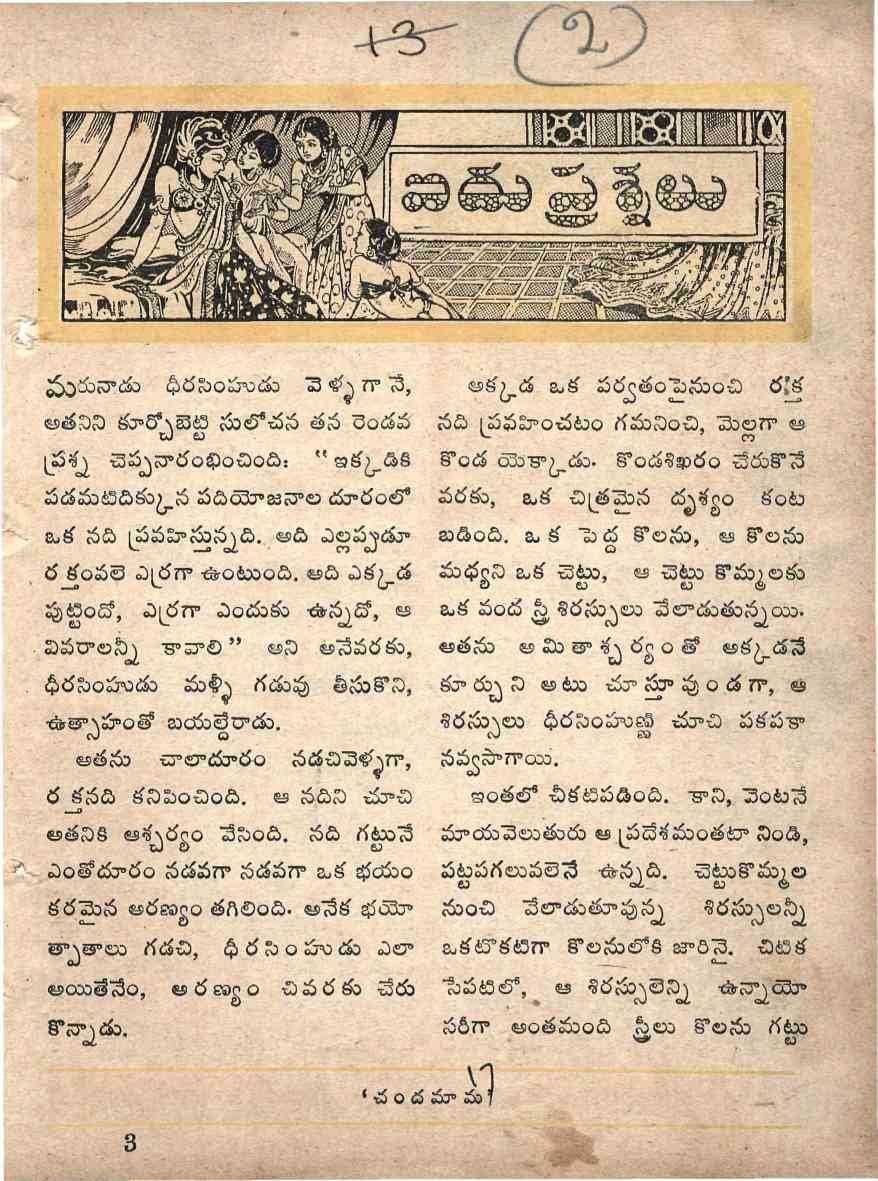 +3 (2)
ఐదు ప్రశ్నలు
మరునాడు ధీరసింహుడు వెళ్ళగానే,
అతనిని కూర్చోబెట్టి సులోచన తన రెండవ
ప్రశ్న చెప్పనారంభించింది: “ఇక్కడికి
పడమటిదిక్కున పదియోజనాల దూరంలో
ఒక నది ప్రవహిస్తున్నది. అది ఎల్లప్పుడూ
రక్తంవలె ఎర్రగా ఉంటుంది. అది ఎక్కడ
పుట్టిందో, ఎర్రగా ఎందుకు ఉన్నదో, ఆ
వివరాలన్నీ కావాలి” అని అనేవరకు,
ధీరసింహుడు మళ్ళీ గడువు తీసుకొని,
ఉత్సాహంతో బయల్దేరాడు.
అతను చాలాదూరం నడచివెళ్ళగా,
రక్తనది కనిపించింది. ఆ నదిని చూచి
అతనికి ఆశ్చర్యం వేసింది. నది గట్టునే
ఎంతోదూరం నడవగా నడవగా ఒక భయం
కరమైన అరణ్యం తగిలింది. అనేక భయో
త్పాతాలు గడచి, ధీరసింహుడు ఎలా
అయితేనేం, అరణ్యం చివరకు చేరు
కొన్నాడు.
అక్కడ ఒక పర్వతంపైనుంచి రక్త
నది ప్రవహించటం గమనించి, మెల్లగా ఆ
కొండ యెక్కాడు. కొండశిఖరం చేరుకొనే
వరకు, ఒక చిత్రమైన దృశ్యం కంట
బడింది. ఒక పెద్ద కొలను, ఆ కొలను
మధ్యని ఒక చెట్టు, ఆ చెట్టు కొమ్మలకు
ఒక వంద స్త్రీ శిరస్సులు వేలాడుతున్నయి.
అతను అమితాశ్చర్యంతో అక్కడనే
కూర్చుని అటు చూస్తూవుండగా, ఆ
శిరస్సులు ధీరసింహుణ్ణి చూచి పకపకా
నవ్వసాగాయి.
ఇంతలో చీకటిపడింది. కాని, వెంటనే
మాయవెలుతురు ఆ ప్రదేశమంతటా నిండి,
పట్టపగలువలెనే ఉన్నది. చెట్టుకొమ్మల
నుంచి వేలాడుతూవున్న శిరస్సులన్నీ
ఒకటొకటిగా కొలనులోకి జారినై. చిటిక
సేపటిలో, ఆ శిరస్సులెన్ని ఉన్నాయో
సరీగా అంతమంది స్త్రీలు కొలను గట్టు
17
‘చందమామ’
3